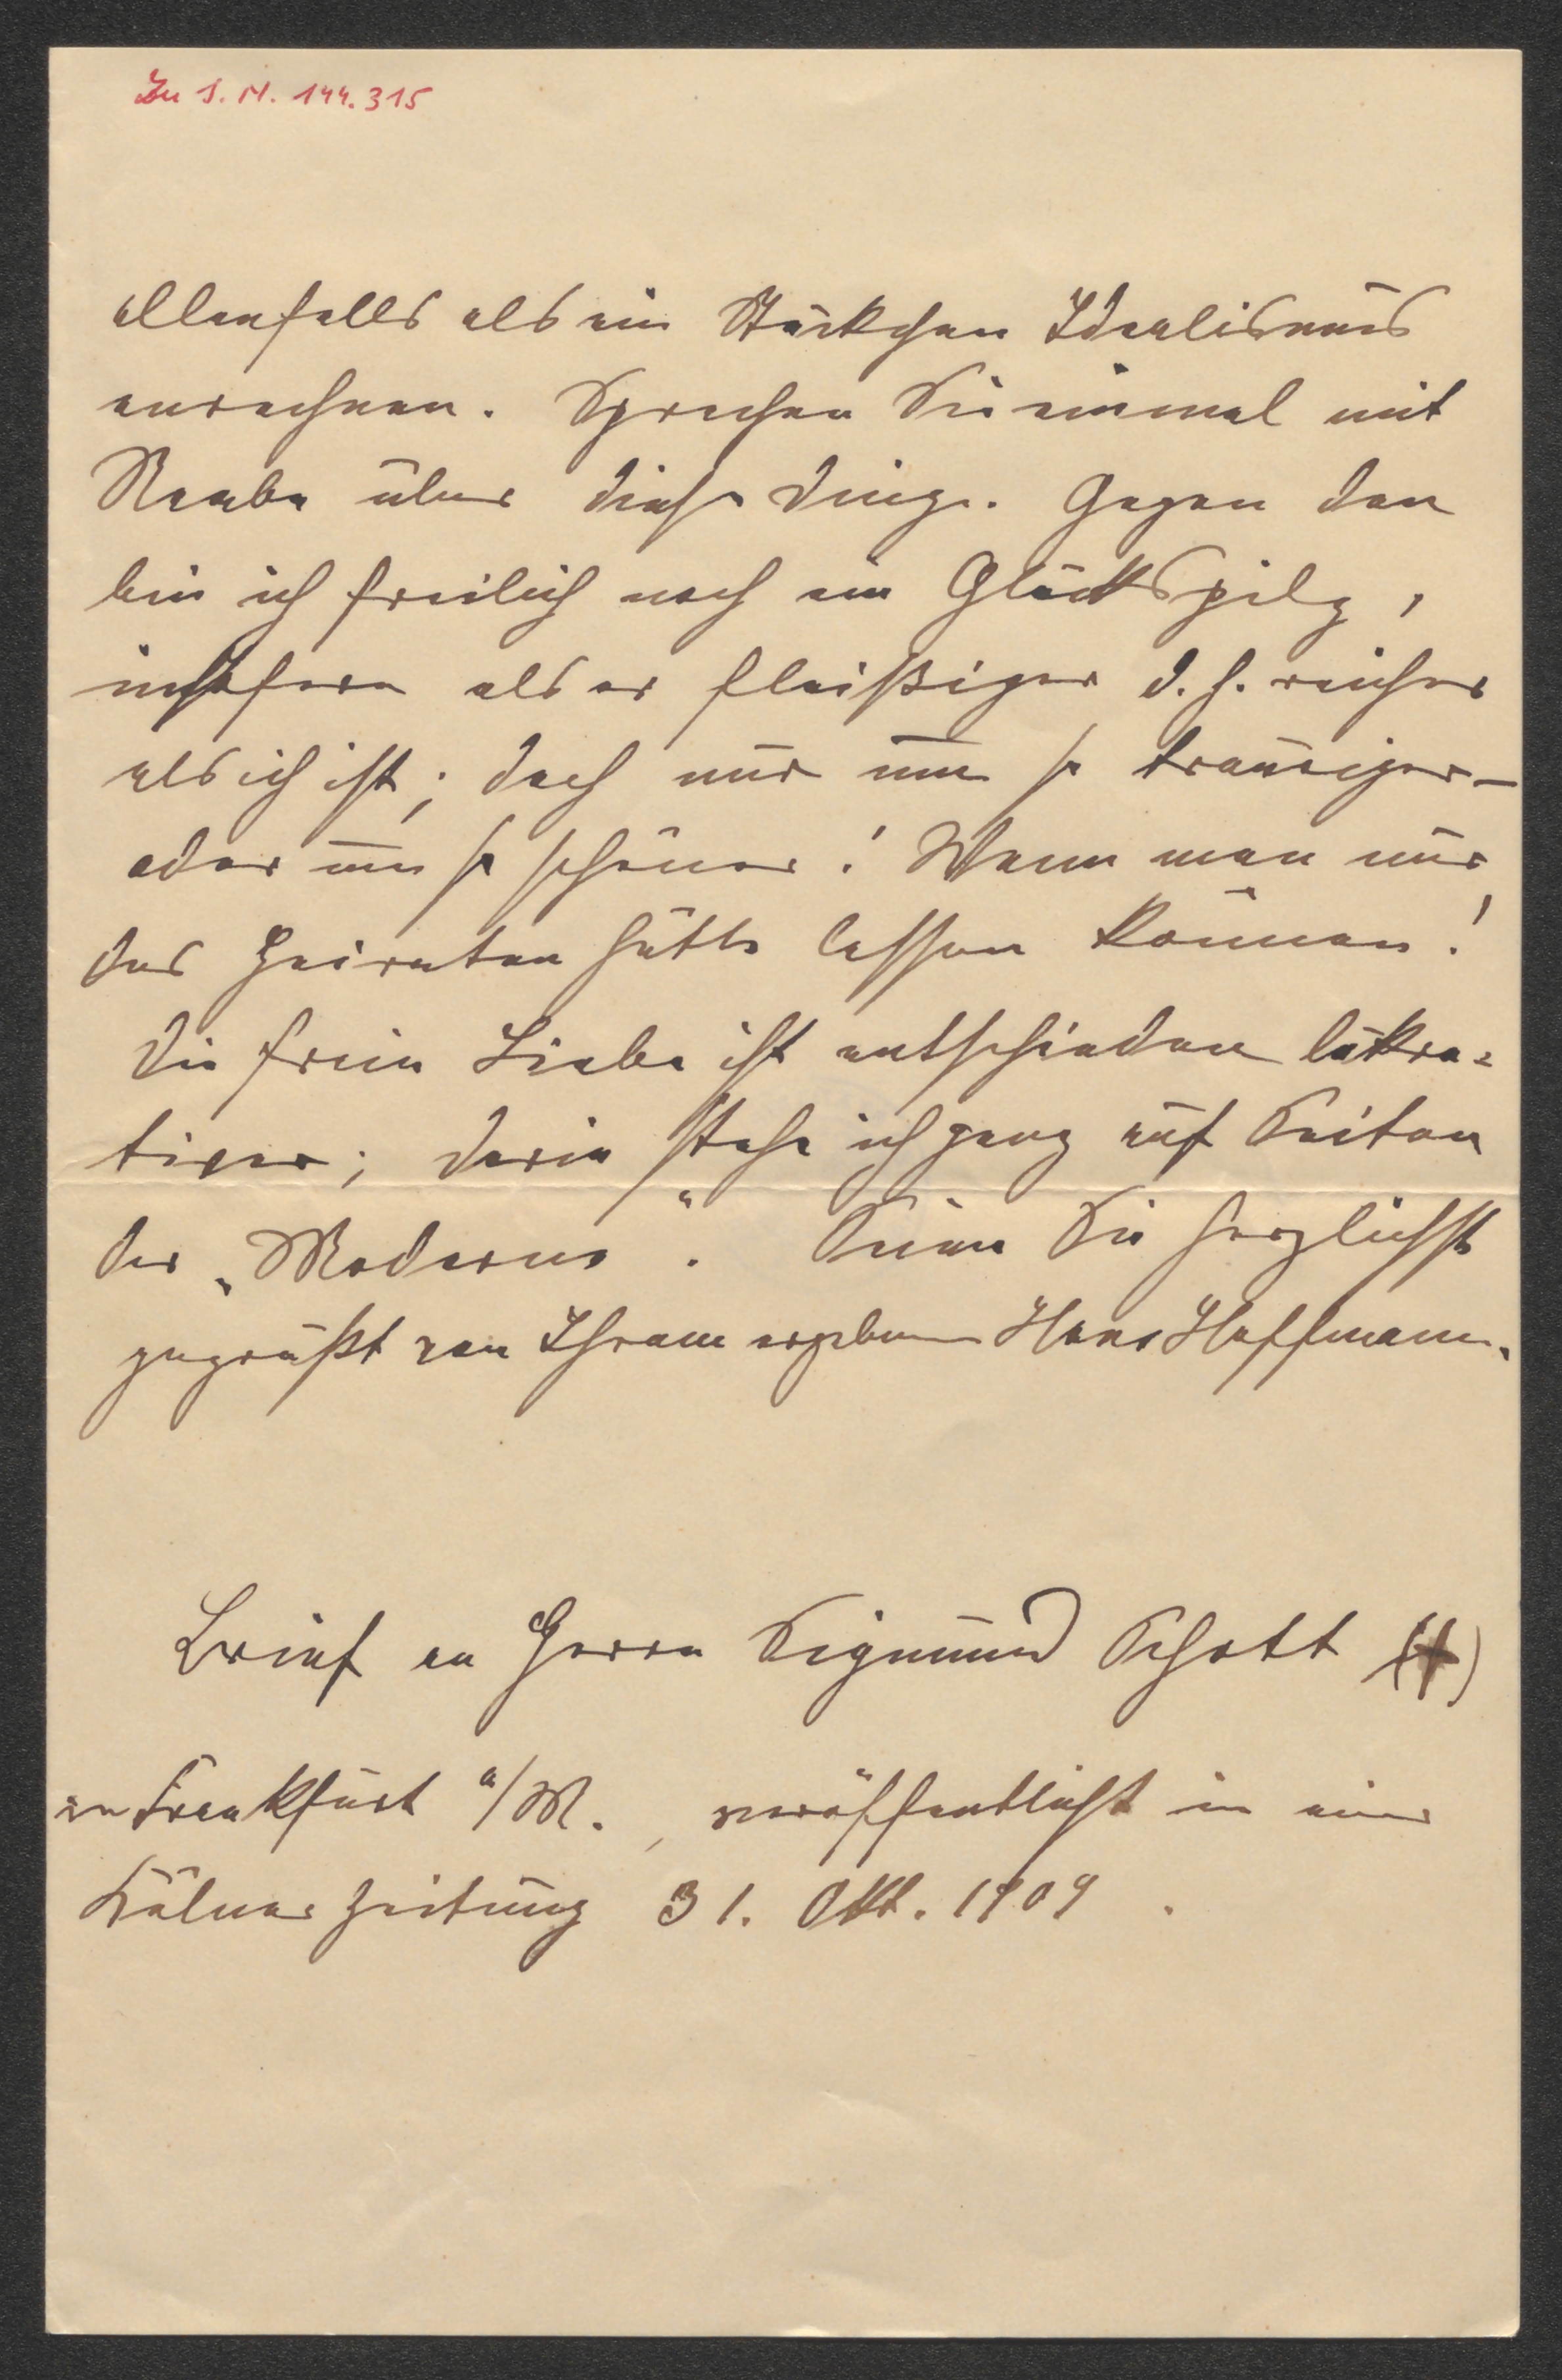 Zu I. N. 144.315
allenfalls als ein Stückchen Idealismus
anrechnen. Sprechen Sie einmal mit
Raabe über diese Dinge. Gegen den
bin ich freilich noch ein Glückspilz,
insofern als er fleißiger d. h. reicher
als ich ist; doch nur um so trauriger –
oder um so schöner! Wenn man nur
das Heiraten hätte lassen können!
Die freie Liebe ist entschieden lukra=
tiver; darin stehe ich ganz auf Seiten
der „Moderne". Seien Sie herzlichst
gegrüßt von Ihrem ergebenen Hans Hoffmann.
Brief an Herrn Sigmund Schott (†)
in Frankfurt a/M., veröffentlicht in einer
Kölner Zeitung 31. Okt. 1909.